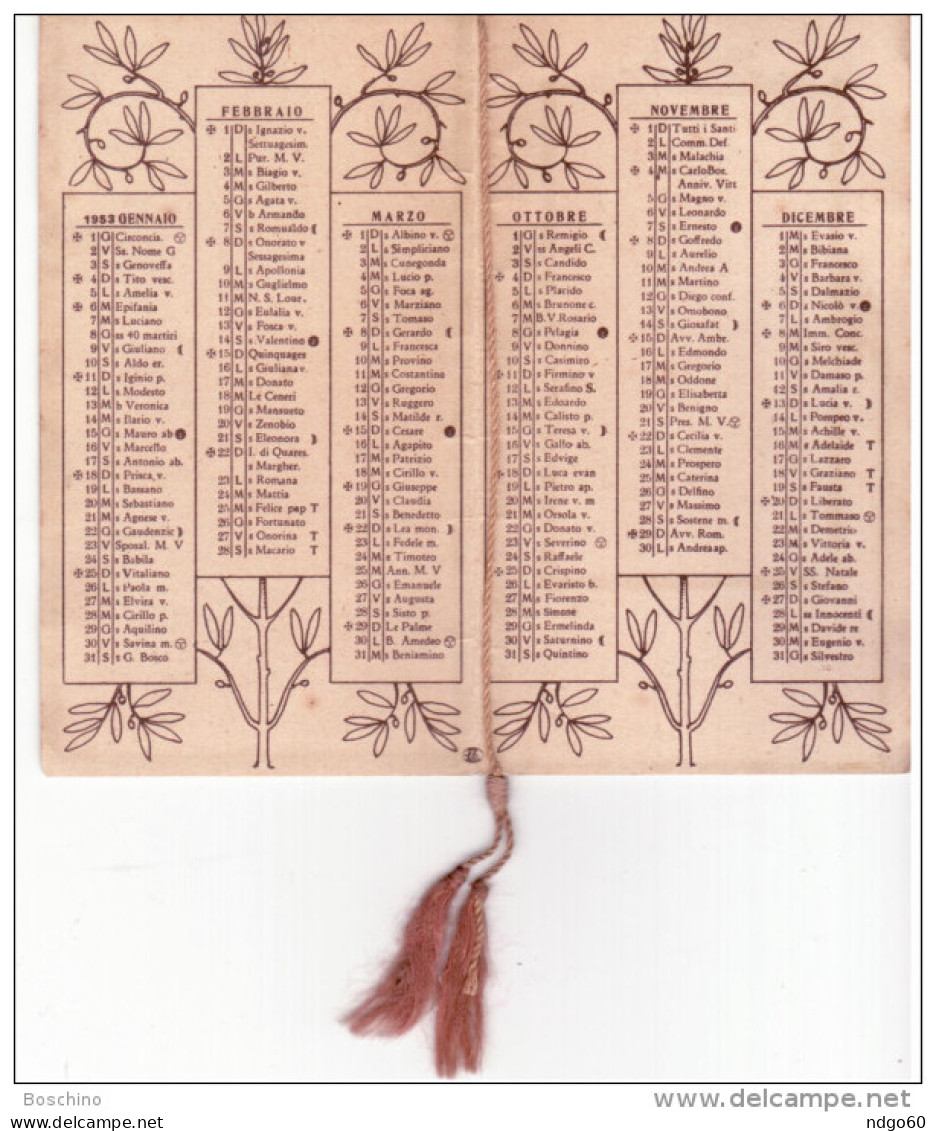 1953 GENNAIO
✠ 1 G Circoncis.
2 V Ss. Nome G
3 S s Genoveffa
✠ 4 D s Tito vesc.
5 L s Amelia v.
✠ 6 M Epifania
7 M s Luciano
8 G ss 40 martiri
9 V s Giuliano
10 S s Aldo er.
✠ 11 D s Iginio p.
12 L s Modesto
13 M b Veronica
14 M s Ilario v.
15 G s Mauro ab
16 V s Marcello
17 S s Antonio ab.
✠ 18 D s Prisca, v.
19 L s Bassano
20 M s Sebastiano
21 M s Agnese v.
22 G s Gaudenzic
23 V Sposal. M. V
24 S s Babila
✠ 25 D s Vitaliano
26 L s Paola m.
27 M s Elvira v.
28 M s Cirillo p.
29 G s Aquilino
30 V s Savina m.
31 S s G. Bosco
FEBBRAIO
✠ 1 D s Ignazio v.
Settuagesim.
2 L Pur. M. V.
3 M s Biagio v.
4 M s Gilberto
5 G s Agata v.
6 V b Armando
7 S s Romualdo
✠ 8 D s Onorato v
Sessagesima
9 L s Apollonia
10 M s Guglielmo
11 M N. S. Lour.
12 G s Eulalia v.
13 V s Fosca v.
14 S s Valentino
✠ 15 D Quinquages
16 L s Giuliana v.
17 M s Donato
18 M Le Ceneri
19 G s Mansueto
20 V s Zenobio
21 S s Eleonora
✠ 22 D I. di Quares.
s Margher.
23 L s Romana
24 M s Mattia
25 M s Felice pap T
26 G s Fortunato
27 V s Onorina T
28 S s Macario T
MARZO
✠ 1 D s Albino v.
2 L s Simpliciano
3 M s Cunegonda
4 M s Lucio p.
5 G s Foca ag.
6 V s Marziano
7 S s Tomaso
✠ 8 D s Gerardo
9 L s Francesca
10 M s Provino
11 M s Costantino
12 G s Gregorio
13 V s Ruggero
14 S s Matilde r.
✠ 15 D s Cesare
16 L s Agapito
17 M s Patrizio
18 M s Cirillo v.
✠ 19 G s Giuseppe
20 V s Claudia
21 S s Benedetto
✠ 22 D s Lea mon.
23 L s Fedele m.
24 M s Timoteo
25 M Ann. M. V
26 G s Emanuele
27 V s Augusta
28 S s Sisto p.
✠ 29 D Le Palme
30 L B. Amedeo
31 M s Beniamino
OTTOBRE
1 G s Remigio
2 V ss Angeli C.
3 S s Candido
✠ 4 D s Francesco
5 L s Placido
6 M s Brunone c.
7 M B.V. Rosario
8 G s Pelagia
9 V s Donnino
10 S s Casimiro
✠ 11 D s Firmino v.
12 L s Serafino S.
13 M s Edoardo
14 M s Calisto p.
15 G s Teresa v.
16 V s Gallo ab.
17 S s Edvige
✠ 18 D s Luca evan
19 L s Pietro ap.
20 M s Irene v. m
21 M s Orsola v.
22 G s Donato v.
23 V s Severino
24 S s Raffaele
✠ 25 D s Crispino
26 L s Evaristo b.
27 M s Fiorenzo
28 M s Simone
29 G s Ermelinda
30 V s Saturnino
31 S s Quintino
NOVEMBRE
✠ 1 D Tutti i Santi
2 L Comm. Def.
3 M s Malachia
✠ 4 M s Carlo Bor.
Anniv. Vitt
5 G s Magno v.
6 V s Leonardo
7 S s Ernesto
✠ 8 D s Goffredo
9 L s Aurelio
10 M s Andrea A
11 M s Martino
12 G s Diego conf.
13 V s Omobono
14 S s Giosafat
✠ 15 D Avv. Ambr.
16 L s Edmondo
17 M s Gregorio
18 M s Oddone
19 G s Elisabetta
20 V s Benigno
21 S Pres. M. V.
✠ 22 D s Cecilia v.
23 L s Clemente
24 M s Prospero
25 M s Caterina
26 G s Delfino
27 V s Massimo
28 S s Sostene m.
✠ 29 D Avv. Rom.
30 L s Andrea ap.
DICEMBRE
1 M s Evasio v.
2 M s Bibiana
3 G s Francesco
4 V s Barbara v.
5 S s Dalmazio
✠ 6 D s Nicolò v.
7 L s Ambrogio
✠ 8 M Imm. Conc.
9 M s Siro vesc.
10 G s Melchiade
11 V s Damaso p.
12 S s Amalia r.
✠ 13 D s Lucia v.
14 L s Pompeo v.
15 M s Achille v.
16 M s Adelaide T
17 G s Lazzaro
18 V s Graziano T
19 S s Fausta T
✠ 20 D s Liberato
21 L s Tommaso
22 M s Demetrio
23 M s Vittoria v.
24 G s Adele ab.
✠ 25 V SS. Natale
26 S s Stefano
✠ 27 D s Giovanni
28 L ss Innocenti
29 M s Davide re
30 M s Eugenio v.
31 G s Silvestro
Boschino
www.delcampe.net
https://www.delcampe.net
ndgo60